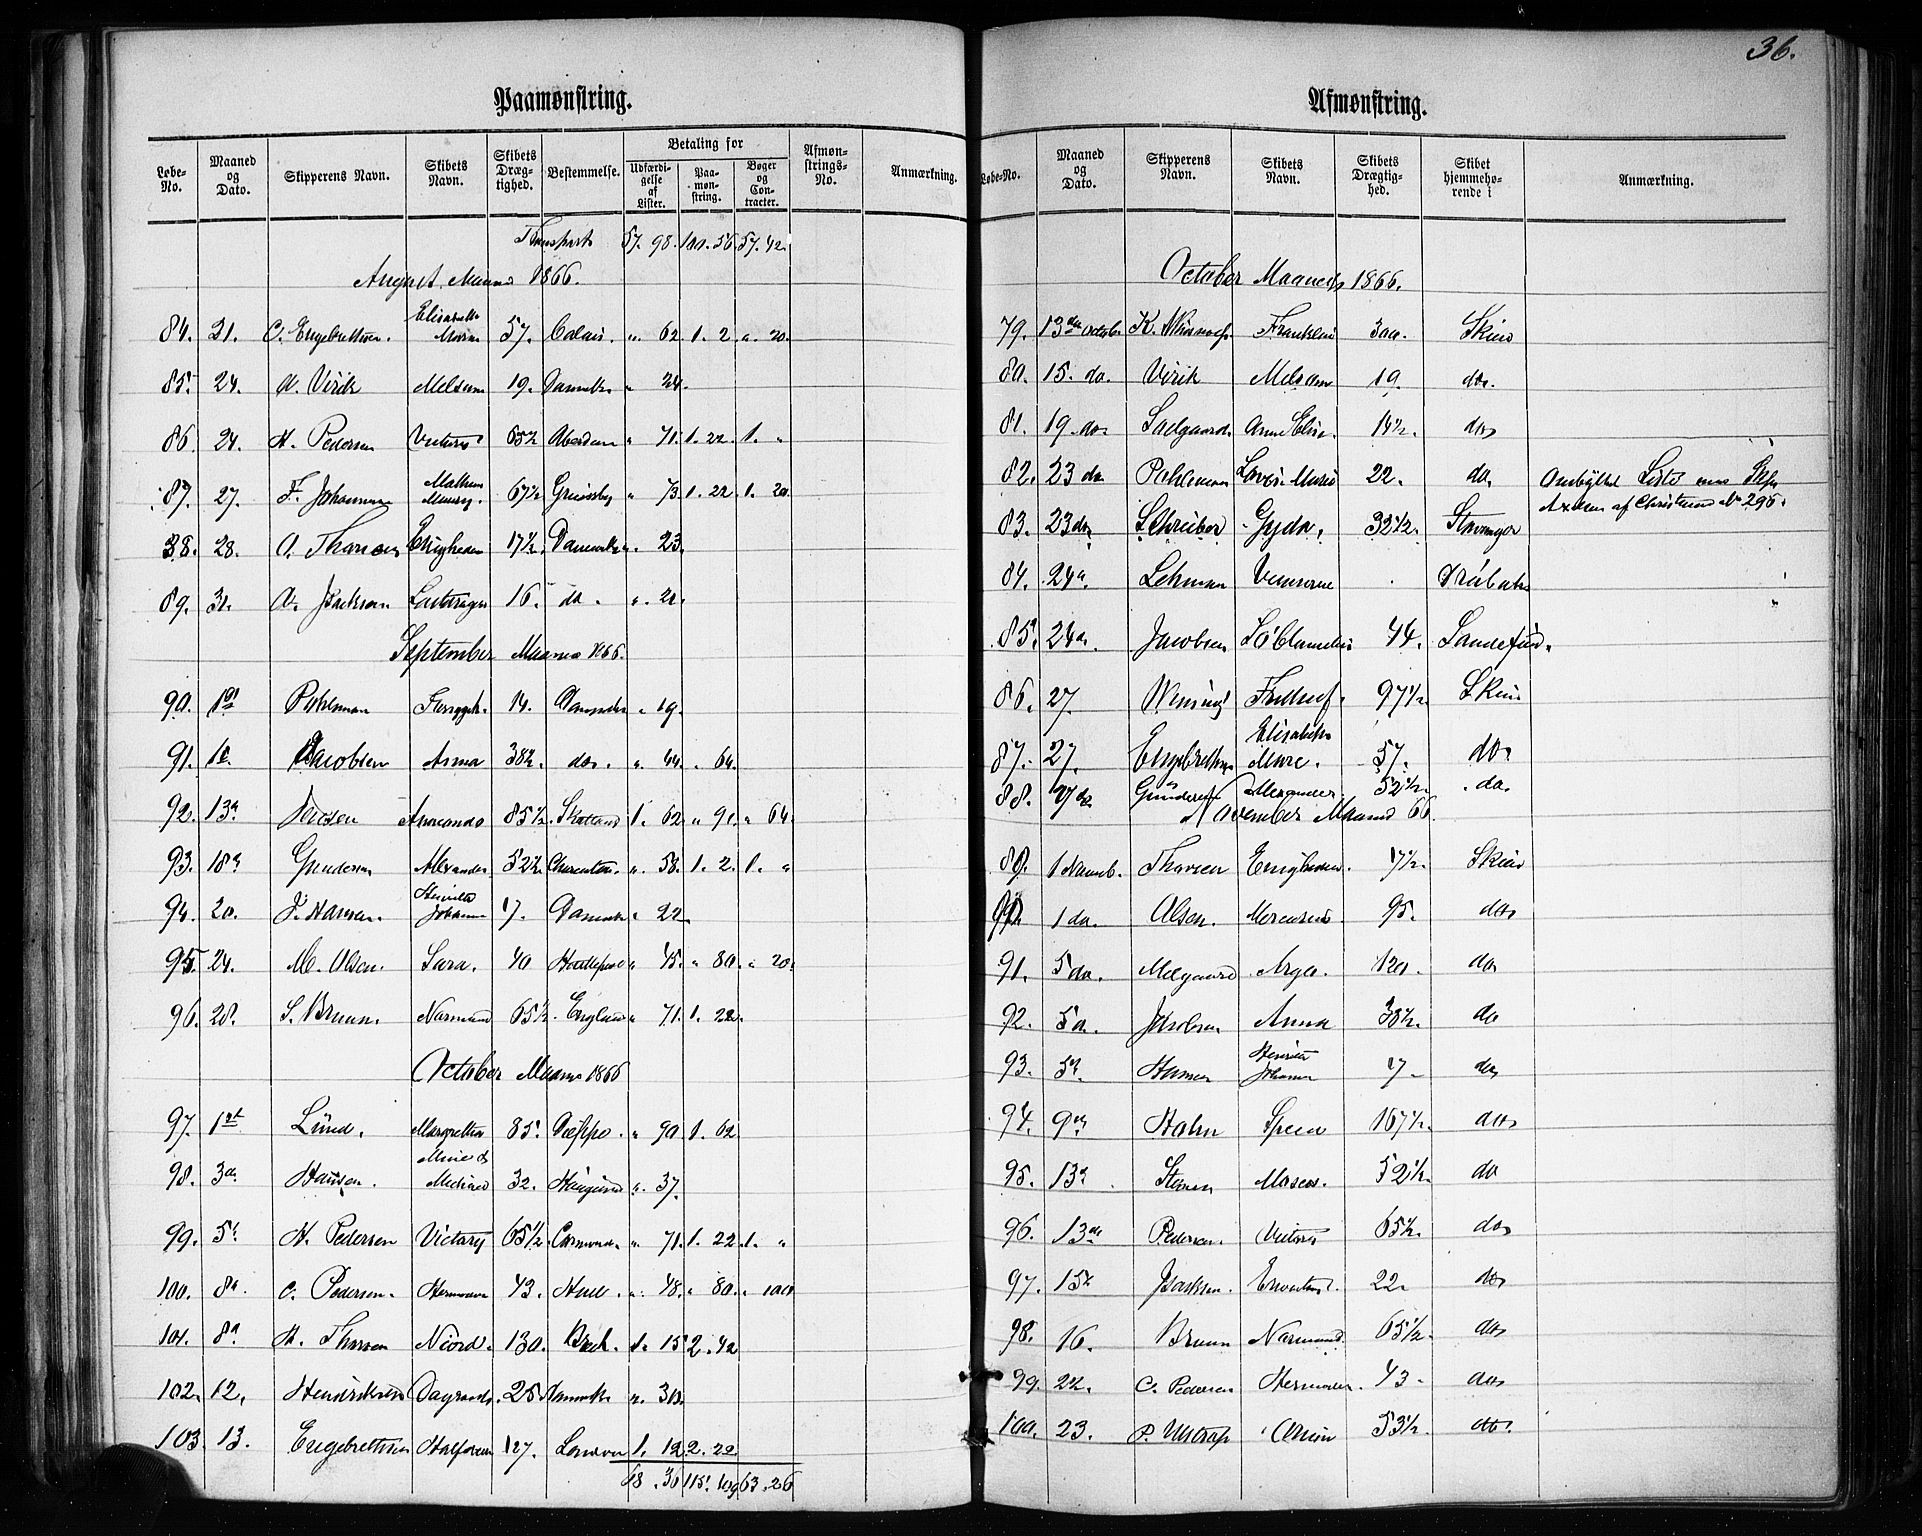 36.
Paamønstring.
Løbe-No. | Maaned og Dato. | Skipperens Navn. | Skibets Navn. | Skibets Dræg-tighed. | Bestemmelse. | Betaling for | Udfærdi-gelse af Lister. | Paa-møn-string. | Bøger og Con-tracter. | Afmøn-strings-No. | Anmærkning.
Transport 57. 98. 101. 56. 57. 42.
August Maaned 1866.
84. 31. C. Engebrethsen. Elisabeth Marie 57. Calais. " 62. 1. 2. " 20.
85. 24. A. Virik Melsom 19. Danmk. " 24.
86. 24. H. Pedersen Victory 65½ Aberdeen " 71. 1. 22. 1. "
87. 27. F. Johannesen 67½ Grimsby " 73. 1. 22. 1. 20.
88. 28. O. Thorsen Enigheden 17½. Danmk. " 23.
89. 31. A. Isaksen 16. do. " 21.
September Maaned 1866.
90. 1st Pohlman 14. " 19.
91. 10. Jacobsen Anna 38½. do. " 44. " 64.
92. 13. 85½. Skotland 1. 62. " 91. " 64.
93. 18. Gundersen Alexander 52½. Charenton. " 58. 1. 2. 1. "
94. 20. J. Hansen. Henriette Johanne 17. Danmk. " 22.
95. 24. M. Olsen. Sara. 40 Hartlepool " 45. " 80. " 20.
96. 28. S. Bruun. Normand 65½. England " 71. 1. 22.
October Maaned 1866
97. 1st Lund. Margretha 85. Dieppe. " 90. 1. 62
98. 3. Hansen. 32. " 37.
99. 5. H. Pedersen Victory 65½. " 71. 1. 22. 1. "
100. 8. C. Pedersen. 43. Hull. " 48. " 80. " 100
101. 8. H. Thorsen Niord. 130. 1. 15 2. 42
102. 12. Hendriksen 25. Danmk " 30.
103. 13. Engebrethsen Halfdan 127. London 1. 12 2. 22
68. 30 115. 109 63. 26
Afmønstring.
Løbe-No. | Maaned og Dato. | Skipperens Navn. | Skibets Navn. | Skibets Drægtig-hed. | Skibet hjemmehø-rende i | Anmærkning.
October Maaned 1866.
79. 13de Octobr. Franklin 300. Skien
80. 15. do. Virik Melsom 19. do.
81. 19. do. Anne Elise. 14½. do
82. 23 do. Pohlman Lovise Marie 22. do. Ombyttet Liste
af Christiania No 296.
83. 23 do Schreiber Gyda. 32½. Stavanger
84. 24. Lehman Drøbak
85. 24. Jacobsen 44. Sandefjord.
86. 27. Fridthjof. 97½. Skien
87. 27. Engebrethsen Elisabeth Marie. 57. do
88. Gundersen Alexander. 52½. do.
November Maaned 66.
89. 1 Novemb. Thorsen Enigheden. 17½. Skien
90. 1 do. Olsen. Mercurius 95. do
91. 5 do. Melgaard Argo. 121. do
92. 5. Jacobsen Anna 38½. do
93. 5. Hansen Henriette Johanne 17. do
94. 9. Hahn 167½. do
95. 13. 52½. do
96. 13de Pedersen Victory 65½. do
97. 15. Isaksen. 22. do
98. 16. Bruun Normand 65½. do
99. 22. C. Pedersen 43. do
100. 23. 53½. do.